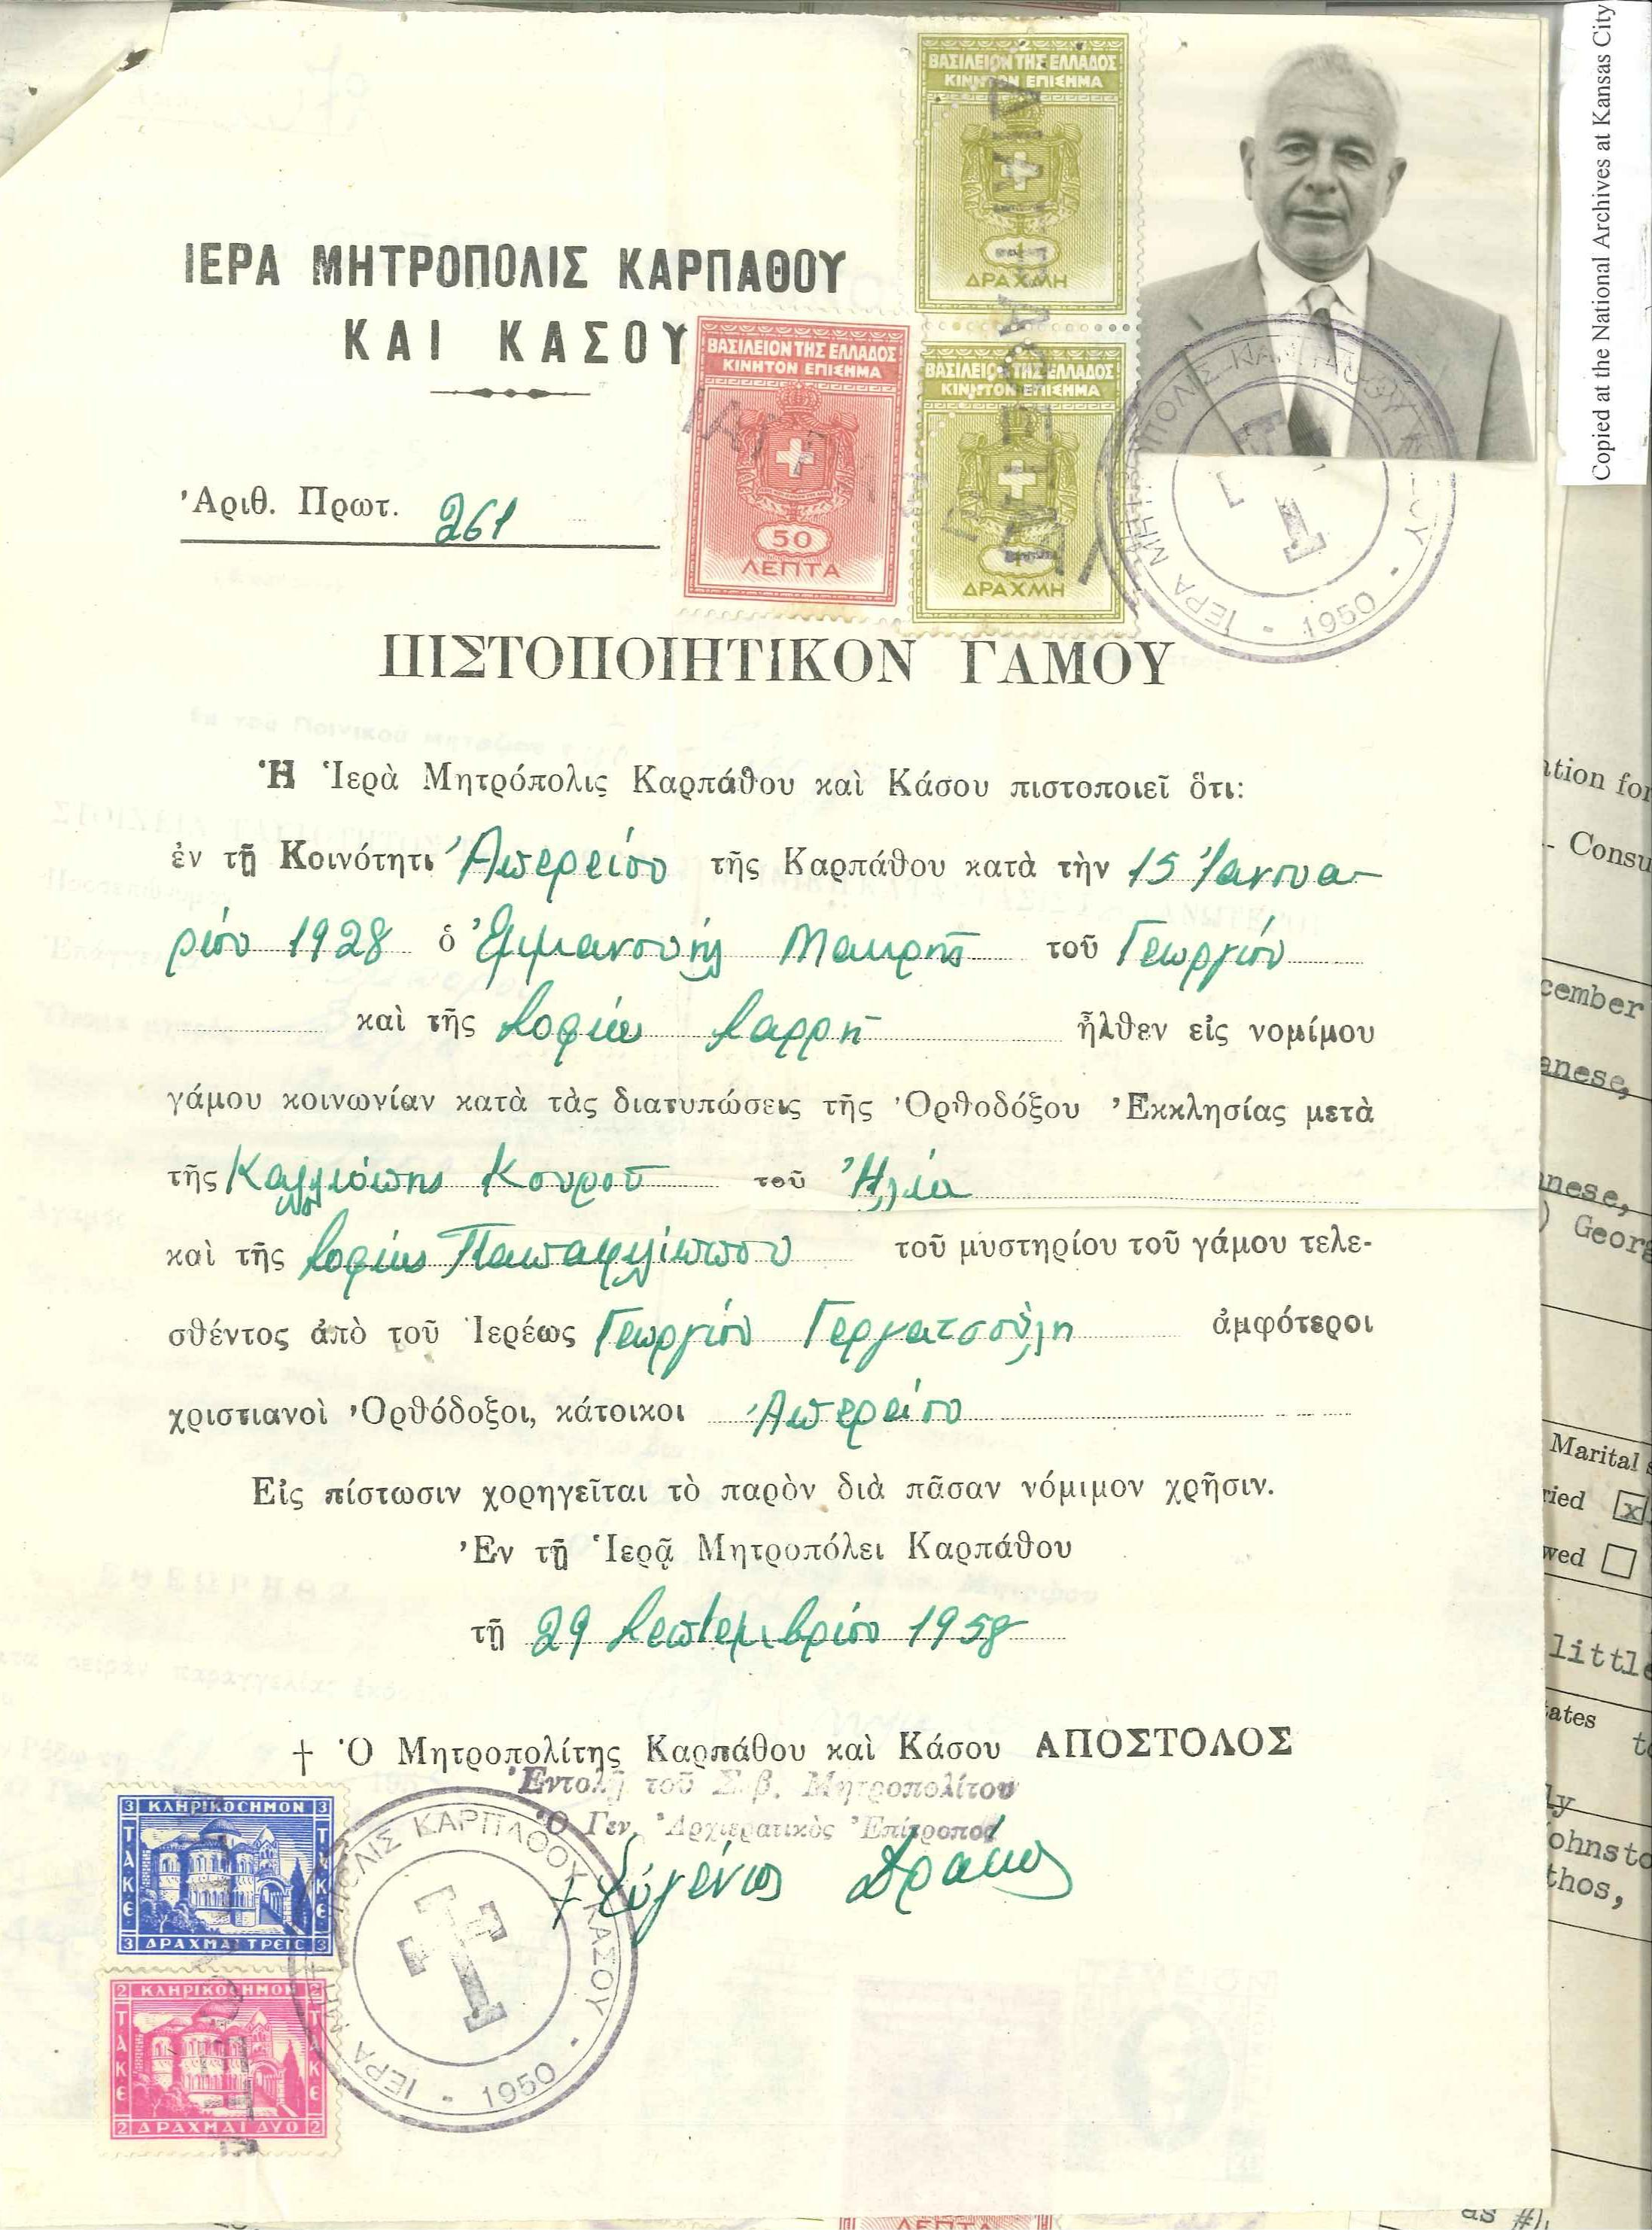 Copied at the National Archives at Kansas City
ΒΑΣΙΛΕΙΟΝ ΤΗΣ ΕΛΛΑΔΟΣ
ΚΙΝΗΤΟΝ ΕΠΙΣΗΜΑ
1
ΔΡΑΧΜΗ
ΙΕΡΑ ΜΗΤΡΟΠΟΛΙΣ ΚΑΡΠΑΘΟΥ
ΚΑΙ ΚΑΣΟΥ
ΒΑΣΙΛΕΙΟΝ ΤΗΣ ΕΛΛΑΔΟΣ
ΚΙΝΗΤΟΝ ΕΠΙΣΗΜΑ
50
ΛΕΠΤΑ
ΒΑΣΙΛΕΙΟΝ ΤΗΣ ΕΛΛΑΔΟΣ
ΚΙΝΗΤΟΝ ΕΠΙΣΗΜΑ
1
ΔΡΑΧΜΗ
ΙΕΡΑ ΜΗΤΡΟΠΟΛΙΣ ΚΑΡΠΑΘΟΥ ΚΑΣΟΥ - 1950 -
Ἀριθ. Πρωτ. 261
ΠΙΣΤΟΠΟΙΗΤΙΚΟΝ ΓΑΜΟΥ
Ἡ Ἱερὰ Μητρόπολις Καρπάθου καὶ Κάσου πιστοποιεῖ ὅτι:
ἐν τῇ Κοινότητι Ἀπερείου τῆς Καρπάθου κατὰ τὴν 15 Ἰανουα-
ρίου 1928 ὁ Ἐμμανουήλ Μακρῆς τοῦ Γεωργίου
καὶ τῆς Σοφίας Σαρρῆ ἦλθεν εἰς νομίμου
γάμου κοινωνίαν κατὰ τὰς διατυπώσεις τῆς Ὀρθοδόξου Ἐκκλησίας μετὰ
τῆς Καλλιόπης Κουροῦ τοῦ Ἠλία
καὶ τῆς Σοφίας Παπαφιλίππου τοῦ μυστηρίου τοῦ γάμου τελε-
σθέντος ἀπὸ τοῦ Ἱερέως Γεωργίου Γεργατσούλη ἀμφότεροι
χριστιανοὶ Ὀρθόδοξοι, κάτοικοι Ἀπερείου
Εἰς πίστωσιν χορηγεῖται τὸ παρὸν διὰ πᾶσαν νόμιμον χρῆσιν.
Ἐν τῇ Ἱερᾷ Μητροπόλει Καρπάθου
τῇ 29 Σεπτεμβρίου 1958
† Ὁ Μητροπολίτης Καρπάθου καὶ Κάσου ΑΠΟΣΤΟΛΟΣ
Ἐντολῇ τοῦ Σεβ. Μητροπολίτου
Ὁ Γεν. Ἀρχιερατικὸς Ἐπίτροπος
+ Εὐγένιος Δράκος
3 ΚΛΗΡΙΚΟCΗΜΟΝ 3
ΤΑΚΕ ΤΑΚΕ
3 ΔΡΑΧΜΑΙ ΤΡΕΙC 3
2 ΚΛΗΡΙΚΟCΗΜΟΝ 2
ΤΑΚΕ ΤΑΚΕ
2 ΔΡΑΧΜΑΙ ΔΥΟ 2
ΙΕΡΑ ΜΗΤΡΟΠΟΛΙΣ ΚΑΡΠΑΘΟΥ ΚΑΣΟΥ - 1950 -
ation for
Consu
cember
anese,
anese,
) Georg
Marital s
ried x
wed
little
tates
ly
ohnsto
thos,
as #1
ΛΕΠΤΑ